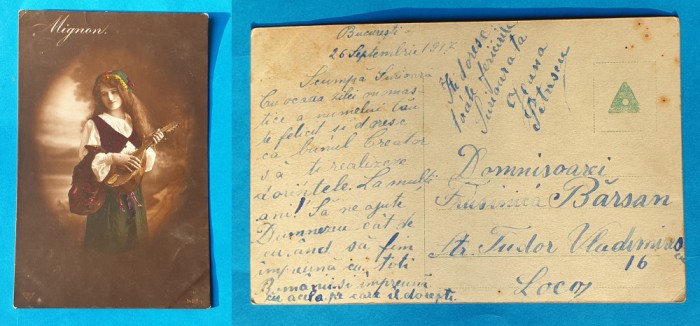 Mignon.
București -
26 Septembrie 1917.
Scumpă
Cu ocazia zilei onomas-
tice a numelui tău
te felicit și doresc
ca bunul Creator
să ți realizeze
dorințele. La mulți
ani! Să ne ajute
Dumnezeu cât de
curând să fim
împreună cu toți
Românii și împreună
cu acela pe care il dorești.
Îți doresc
toate fericirile
Petrescu
Domnișoarei
Bârsan
Str. Tudor Vladimirescu
16
Loco